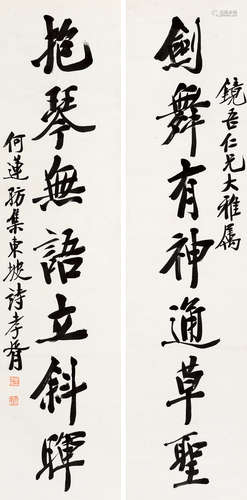 鏡吾仁兄大雅属
劍舞有神通草聖
抱琴無語立斜暉
何蓮舫集東坡詩孝胥